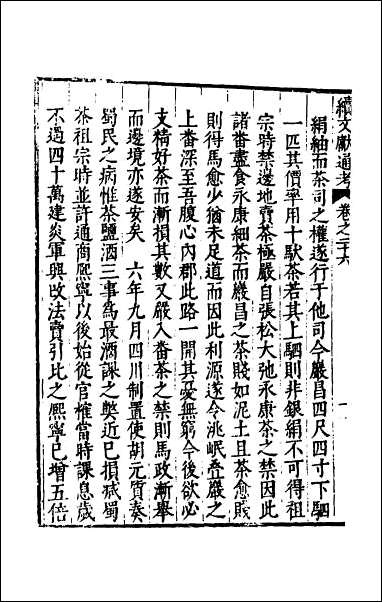 續文獻通考 卷之二十六 一
絹紬而茶司之權遂行于他司今巖昌四尺四寸下駟
一匹其價率用十䭾茶若其上駟則非銀絹不可得祖
宗時禁邊地賣茶極嚴自張松大弛永康茶之禁因此
諸番盡食永康細茶而巖昌之茶賤如泥土且茶愈賤
則得馬愈少猶未足道而因此利源遂令洮岷疊巖之
土番深至吾腹心內郡此路一開其憂無窮今後欲必
支精好茶而漸損其數又嚴入番茶之禁則馬政漸舉
而邊境亦遂安矣 六年九月四川制置使胡元質奏
蜀民之病惟茶鹽酒三事為最酒課之弊近已損減蜀
茶祖宗時並許通商熙寧以後始從官榷當時課息歲
不過四十萬建炎軍興改法賣引比之熙寧已增五倍